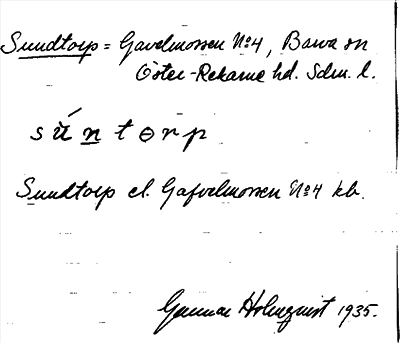 Sundtorp = Gavelmossen No 4, Bawa sn
Öster-Rekarne hd. Sdm. l.
súntɵrp
Sundtorp el. Gafvelmossen No 4 kb.
Gunnar Holmqvist 1935.